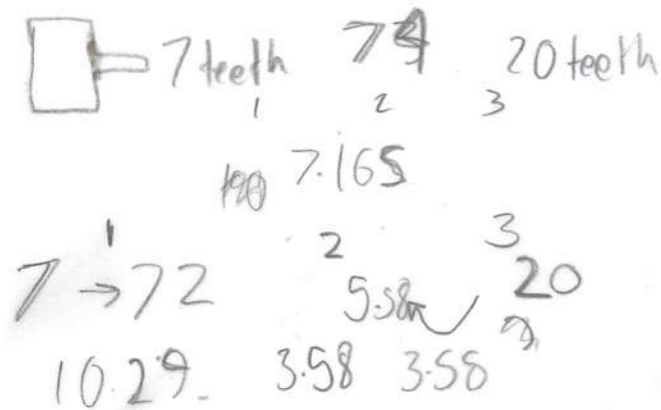 7 teeth 74 20 teeth
1 2 3
7.165
1 2 3
7 → 72 5.58 20
10.29 3.58 3.58